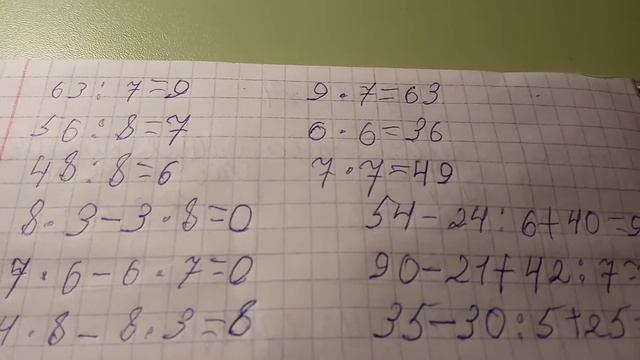 63 : 7 = 9
56 : 8 = 7
48 : 8 = 6
8 · 3 - 3 · 8 = 0
7 · 6 - 6 · 7 = 0
4 · 8 - 8 · 3 = 8
9 · 7 = 63
6 · 6 = 36
7 · 7 = 49
54 - 24 : 6 + 40 = 9
90 - 21 + 42 : 7 =
35 - 30 : 5 + 25